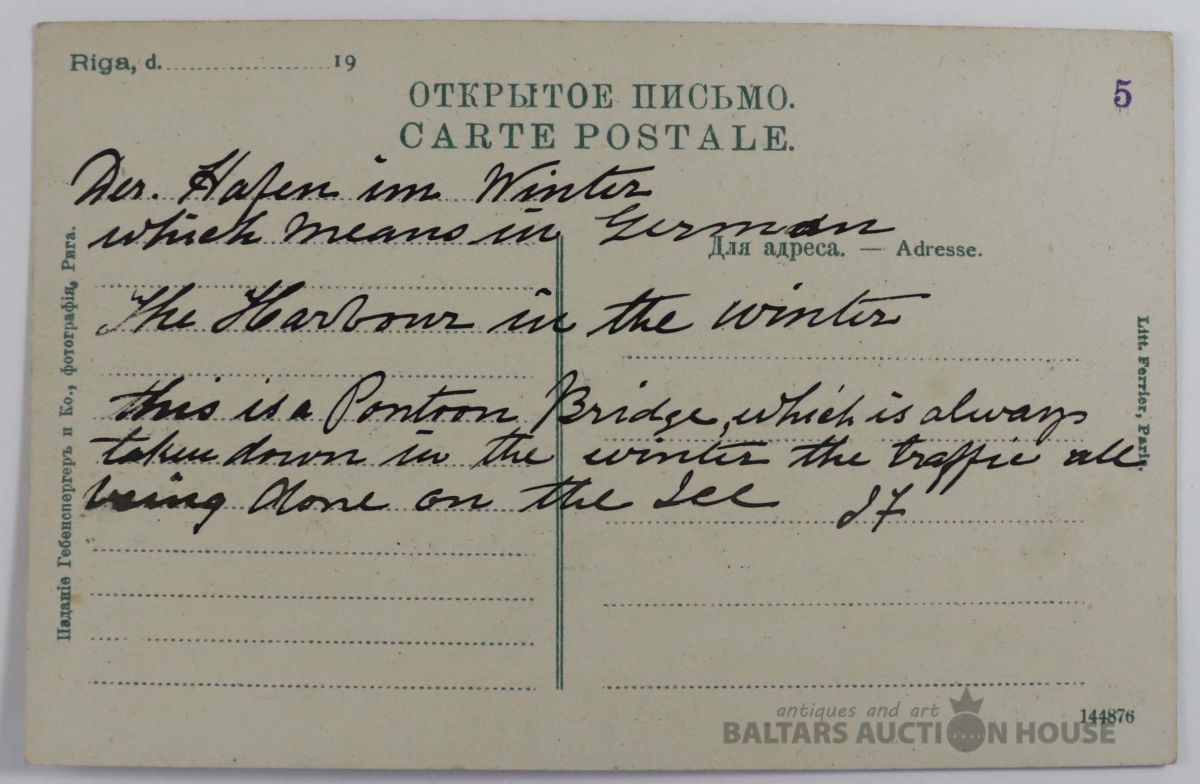 Riga, d. 19
5
ОТКРЫТОЕ ПИСЬМО.
CARTE POSTALE.
Der. Hafen im Winter
which means in German
Для адреса. — Adresse.
The Harbour in the winter
this is a Pontoon Bridge, which is always
taken down in the winter the traffic all
being done on the Ice JF
Изданіе Гебенспергеръ и Ко., фотографія, Рига.
Litt. Ferrier, Paris.
144876
antiques and art
BALTARS AUCTION HOUSE